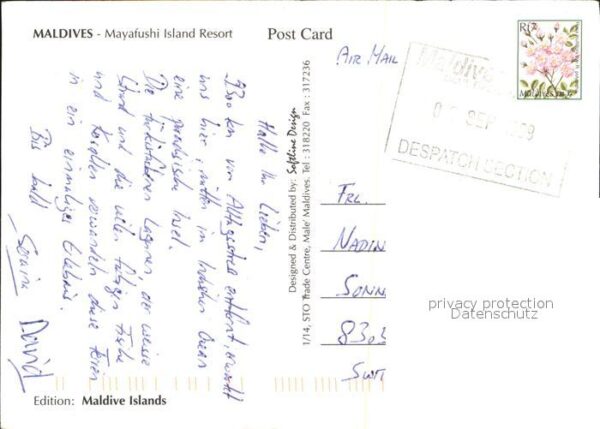 MALDIVES - Mayafushi Island Resort
Post Card
AIR MAIL
Rf7
Maldives
SEP
DESPATCH SECTION
Hallo Ihr Lieben,
von Alltagsstress entfernt, erwartet
uns hier, mitten im Indischen Ozean
eine paradiesische Insel.
Die türkisfarbenen Lagunen, der weisse
Strand und die vielen farbigen Fische
und Korallen verwandeln diese Ferien
in ein einmaliges Erlebnis.
Bis bald
David
Designed & Distributed by: Softline Design
1/14, STO Trade Centre, Male' Maldives. Tel : 318220 Fax : 317236
FRL.
NADIN
SONN
8302
privacy protection
Datenschutz
Edition: Maldive Islands